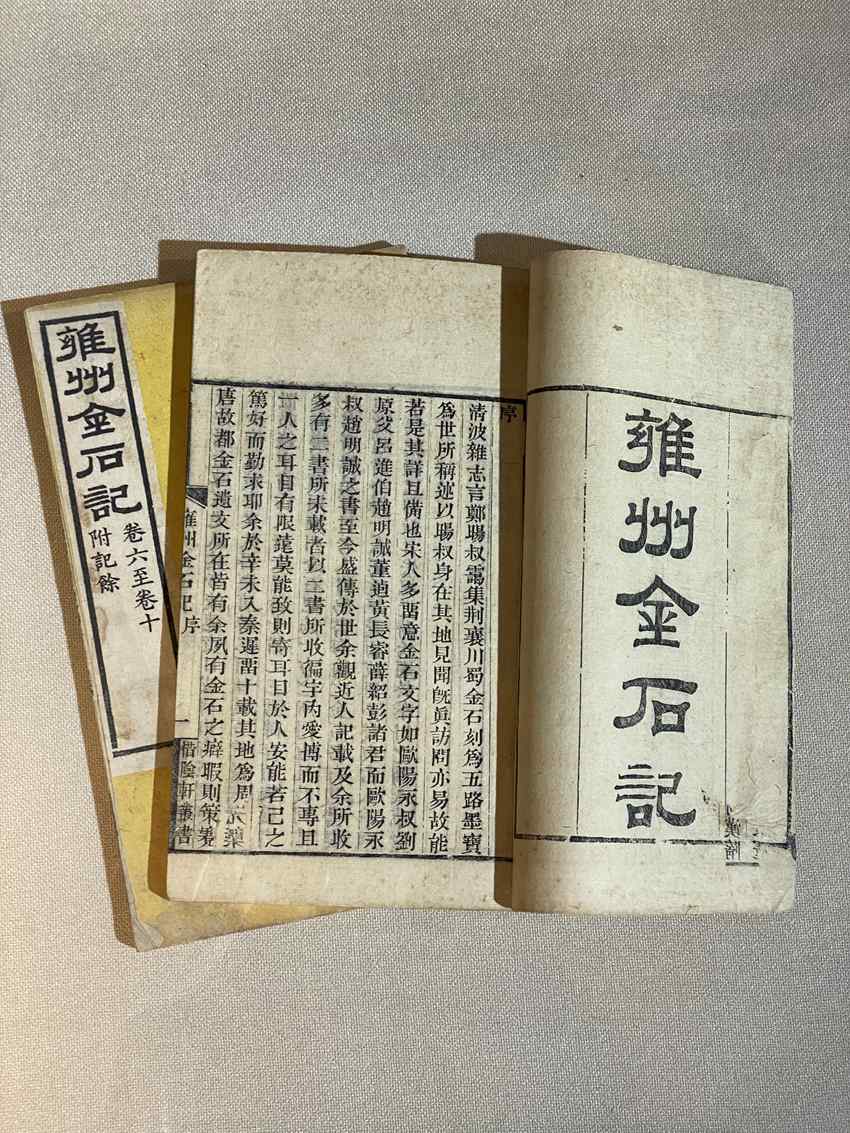 雍州金石記
序
清波雜志言鄭暘叔靄集荊襄川蜀金石刻爲五路墨寶
爲世所稱述以暘叔身在其地見聞旣眞訪問亦易故能
若是其詳且備也宋人多畱意金石文字如歐陽永叔劉
原父呂進伯趙明誠董逌黃長睿薛紹彭諸君而歐陽永
叔趙明誠之書至今盛傳於世余觀近人記載及余所收
多有二書所未載者以二書所收徧宇内愛博而不專且
一人之耳目有限莫能致則寄耳目於人安能若己之
篤好而勤求耶余於辛未入秦遲畱十載其地爲周
唐故都金石遺文所在皆有余夙有金石之癖暇則策蹇
雍州金石記序
一
惜陰軒叢書
雍州金石記
卷六至卷十
附記餘